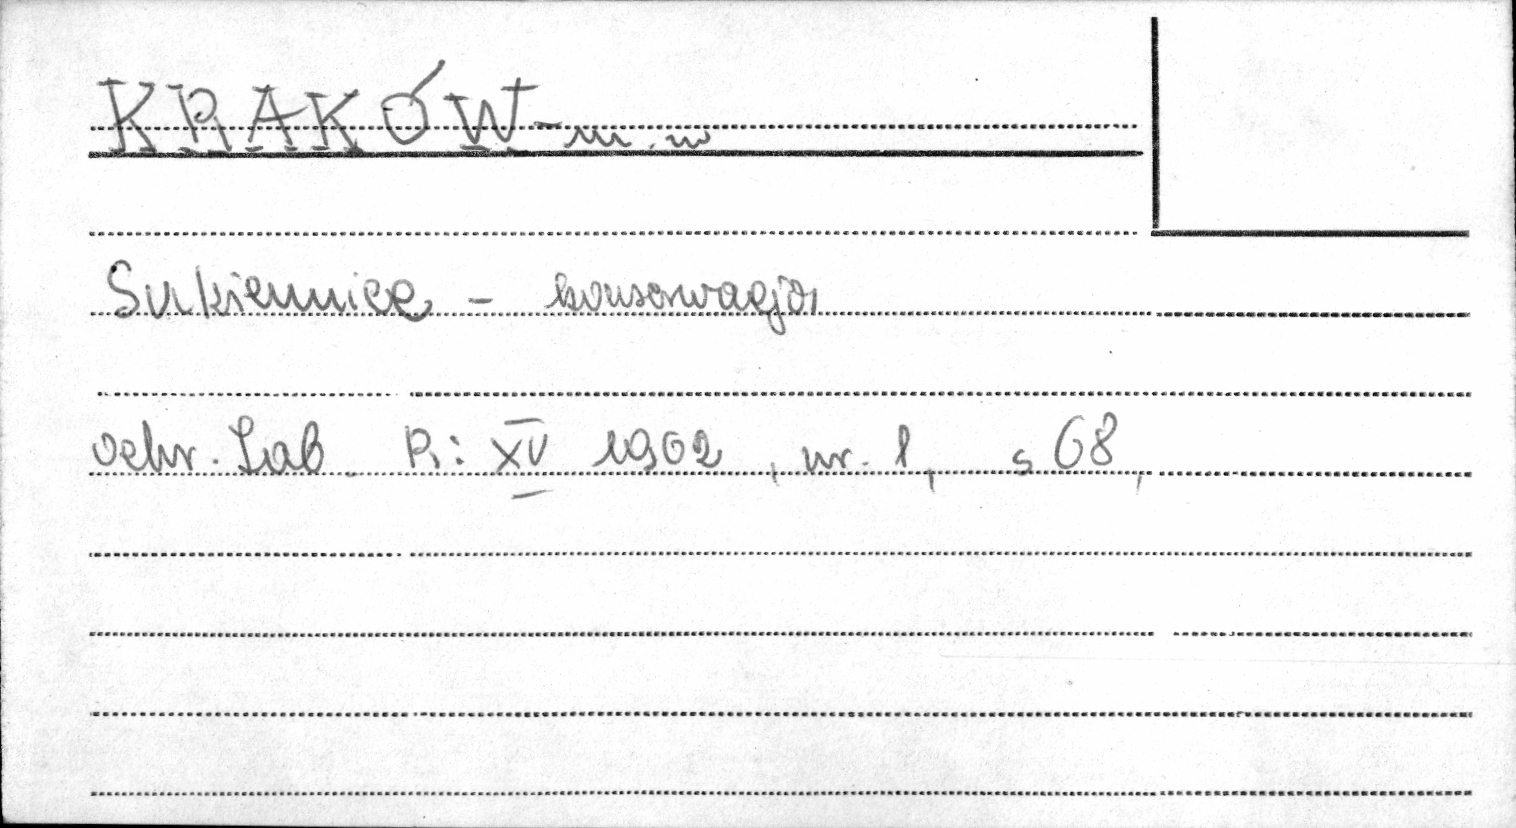 KRAKÓW - m. w
Sukiennice - konserwacja
ochr. Zab. R: XV 1962, nr. 1, s 68,